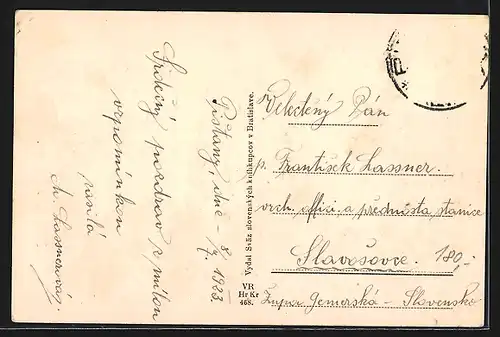 Srdečný pozdrav s milou
vzpomínkou
zasílá
M. Lassnerová.
Píšťany, dne 8/7. 1923.
Vydal Sväz slovenských kníhkupcov v Bratislave.
VR
Hr Kr
468.
Velectěný Pán
p. František Lassner.
vrch. offic. a přednosta stanice
Slavošovce. 180,-
Župa Gemerská - Slovensko